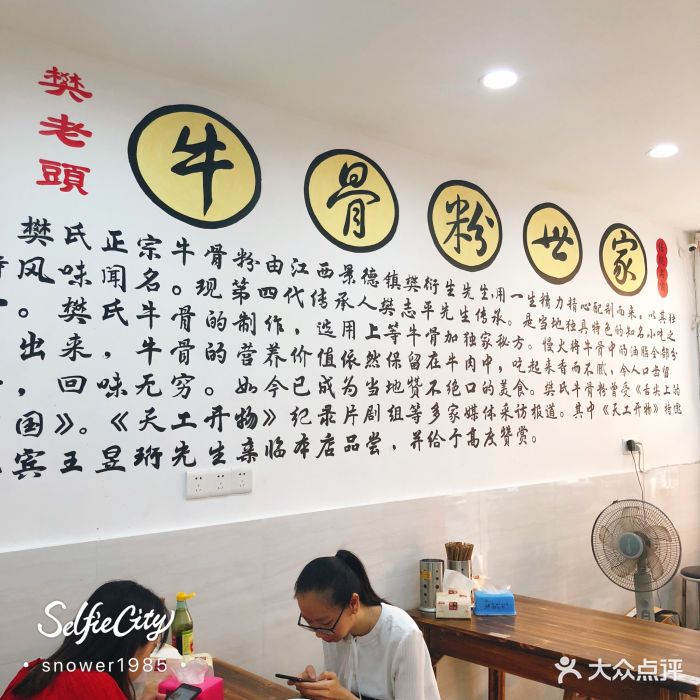 樊老頭
牛骨粉世家
樊氏正宗牛骨粉由江西景德镇樊衍生先生,用一生精力精心配制而来。以其独
风味闻名。现第四代传承人樊志平先生传承。是当地独具特色的知名小吃之
。樊氏牛骨的制作,选用上等牛骨加独家秘方。慢火将牛骨中的油脂全部分
出来,牛骨的营养价值依然保留在牛肉中,吃起来香而不腻,令人口齿留
,回味无穷。如今已成为当地赞不绝口的美食。樊氏牛骨粉曾受《舌尖上的
国》。《天工开物》纪录片剧组等多家媒体采访报道。其中《天工开物》特邀
宾王昱珩先生亲临本店品尝,并给予高度赞赏。
SelfieCity
snower1985
大众点评